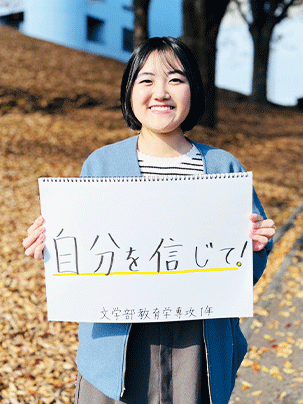 自分を信じて!
文学部教育学専攻1年